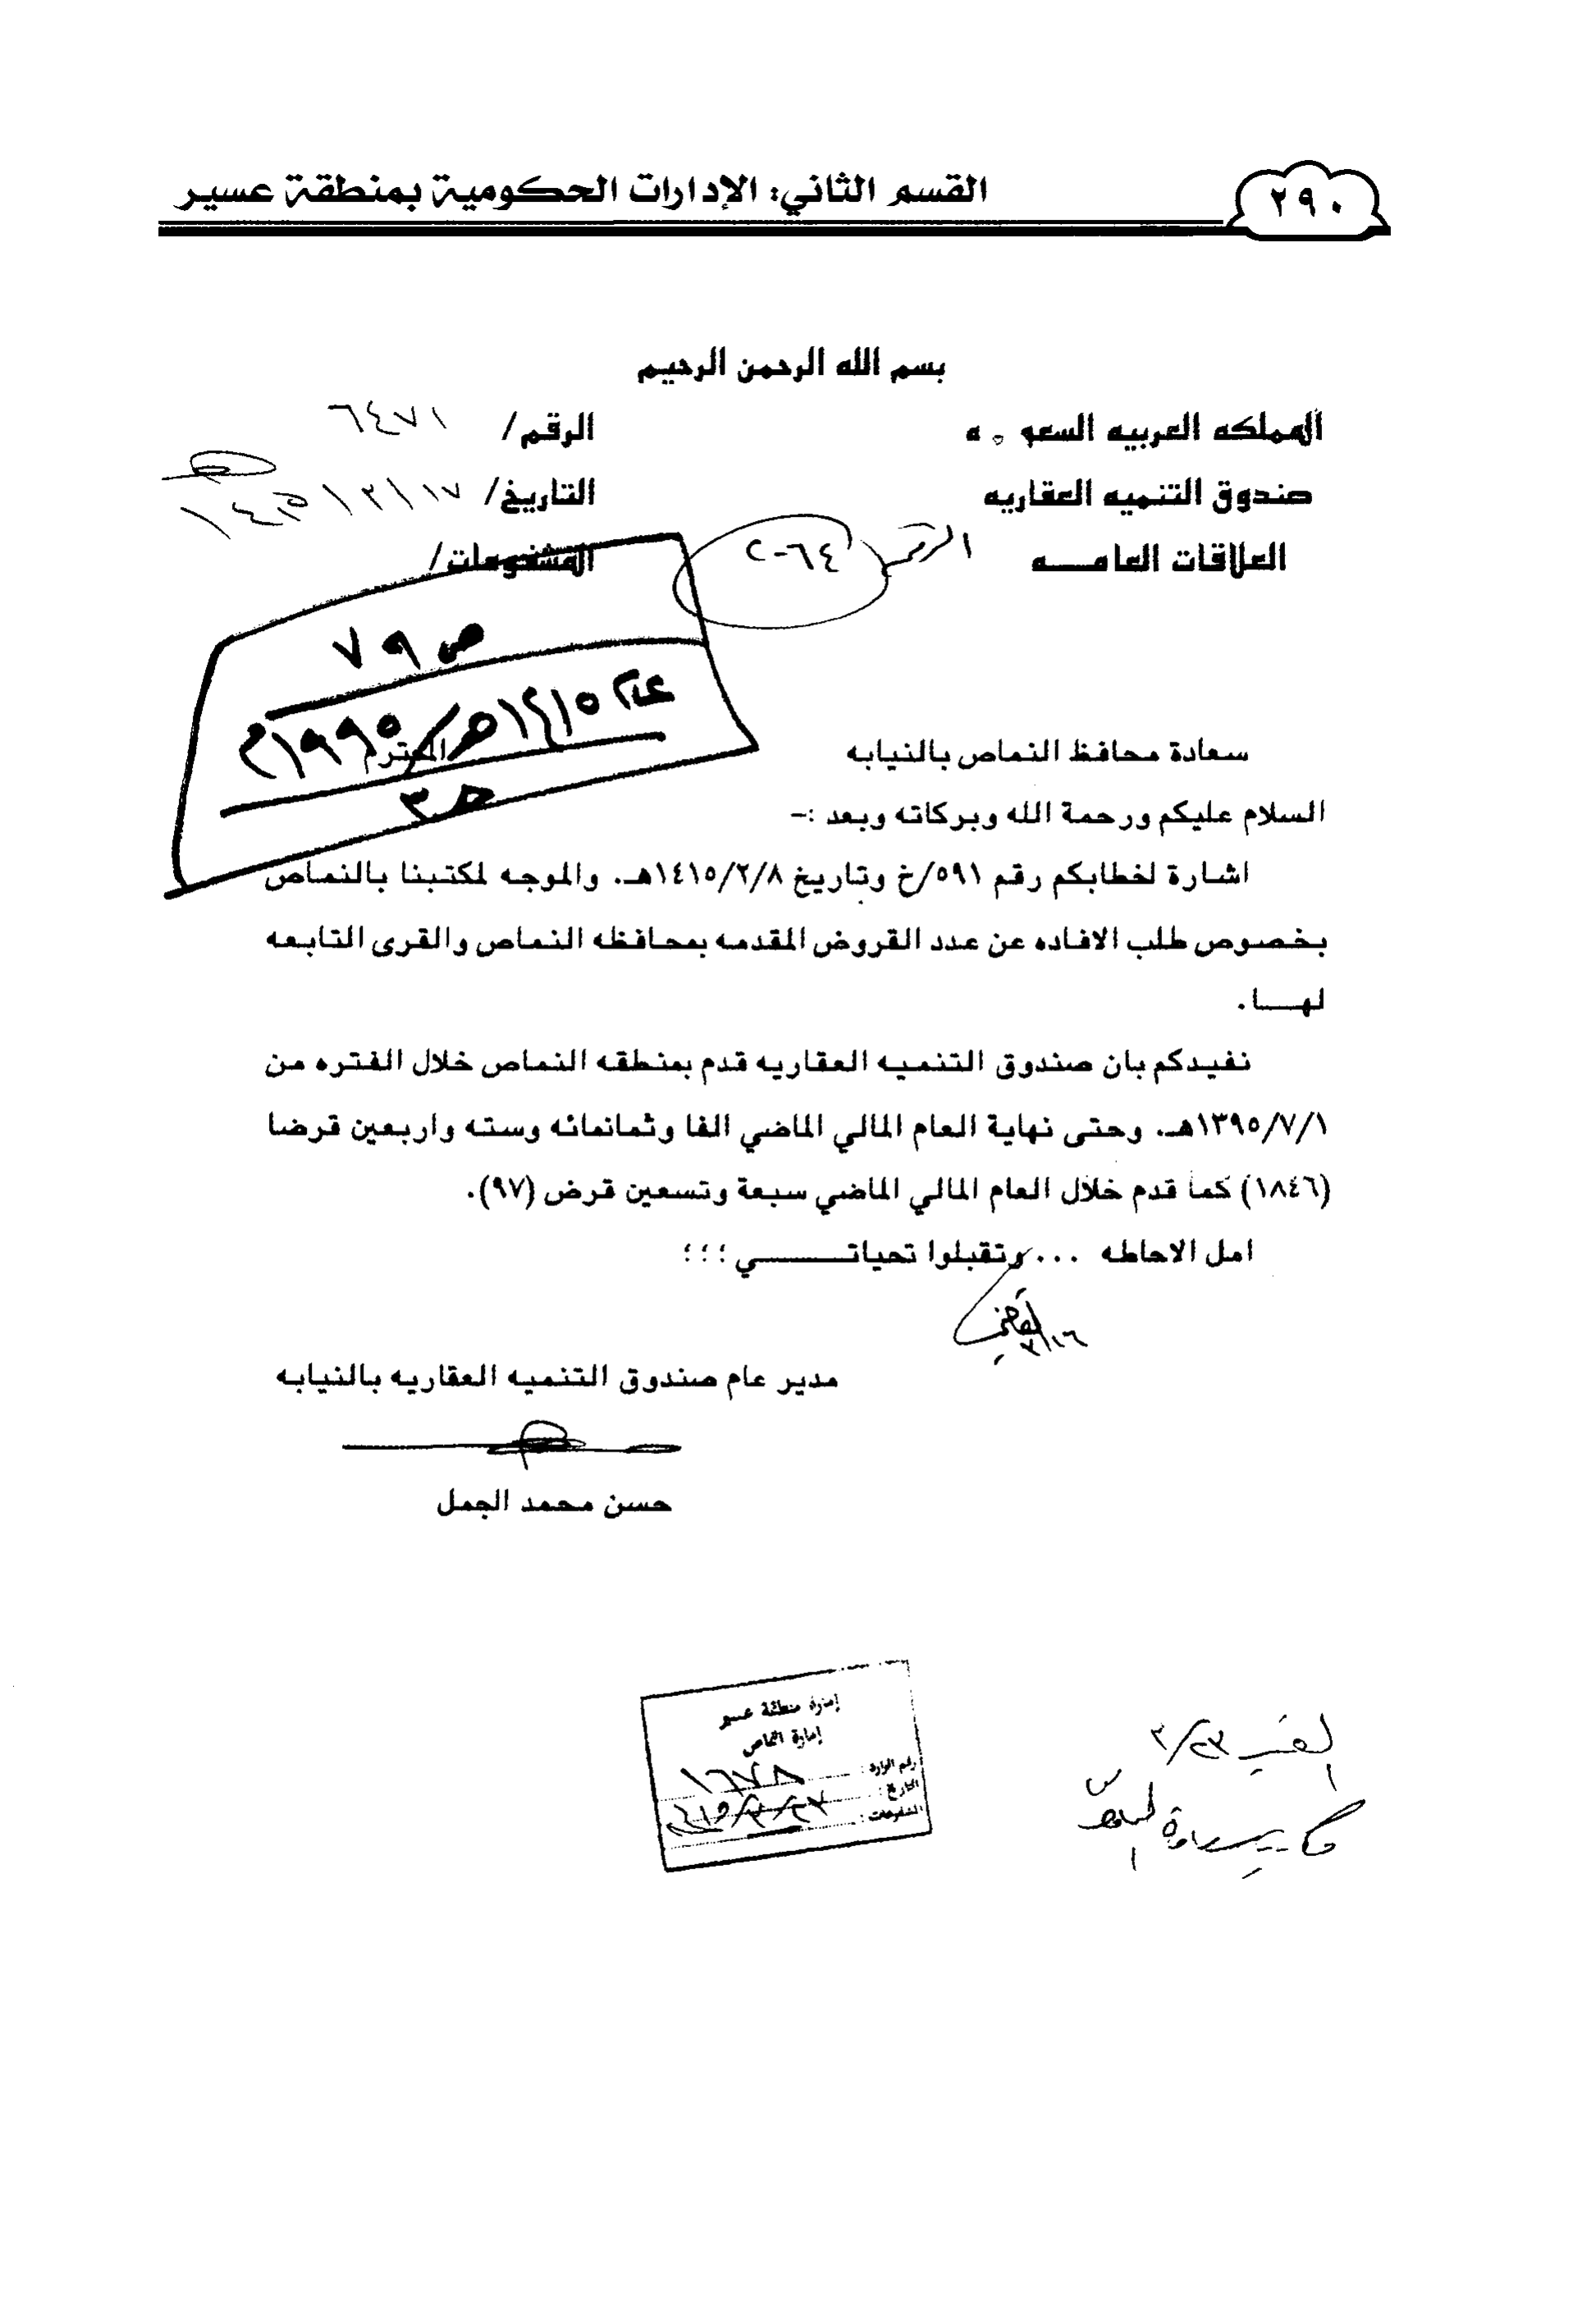 ٢٩٠
القسم الثاني: الإدارات الحكومية بمنطقة عسير
بسم الله الرحمن الرحيم
المملكه العربيه السعو ه
الرقم / ٦٤٧١
صندوق التنميه العقاريه
التاريخ / ١٤١٥/٣/١٧
العلاقات العامـــه
المشفوعات /
الرقم ٢٠٦٤
ص ٧٩
عام ١٤١٥هـ/١٩٩٥م
حـ ٣
سعادة محافظ النماص بالنيابه المحترم
السلام عليكم ورحمة الله وبركاته وبعد :-
اشارة لخطابكم رقم ٥٩١/خ وتاريخ ١٤١٥/٢/٨هـ. والموجه لمكتبنا بالنماص
بخصوص طلب الافاده عن عدد القروض المقدمه بمحافظه النماص والقرى التابعه
لهــا.
نفيدكم بان صندوق التنميه العقاريه قدم بمنطقه النماص خلال الفتره من
١٣٩٥/٧/١هـ. وحتى نهاية العام المالي الماضي الفا وثمانمائه وسته واربعين قرضا
(١٨٤٦) كما قدم خلال العام المالي الماضي سبعة وتسعين قرض (٩٧).
امل الاحاطه ... وتقبلوا تحياتـــــي ؛؛؛
٣/١٦
مدير عام صندوق التنميه العقاريه بالنيابه
حسن محمد الجمل
إمارة منطقة عسير
إمارة النماص
رقم الوارد : ١٦٧٨
التاريخ : ١٤١٥/٣/٢٣
المشفوعات :
٣/٢٣